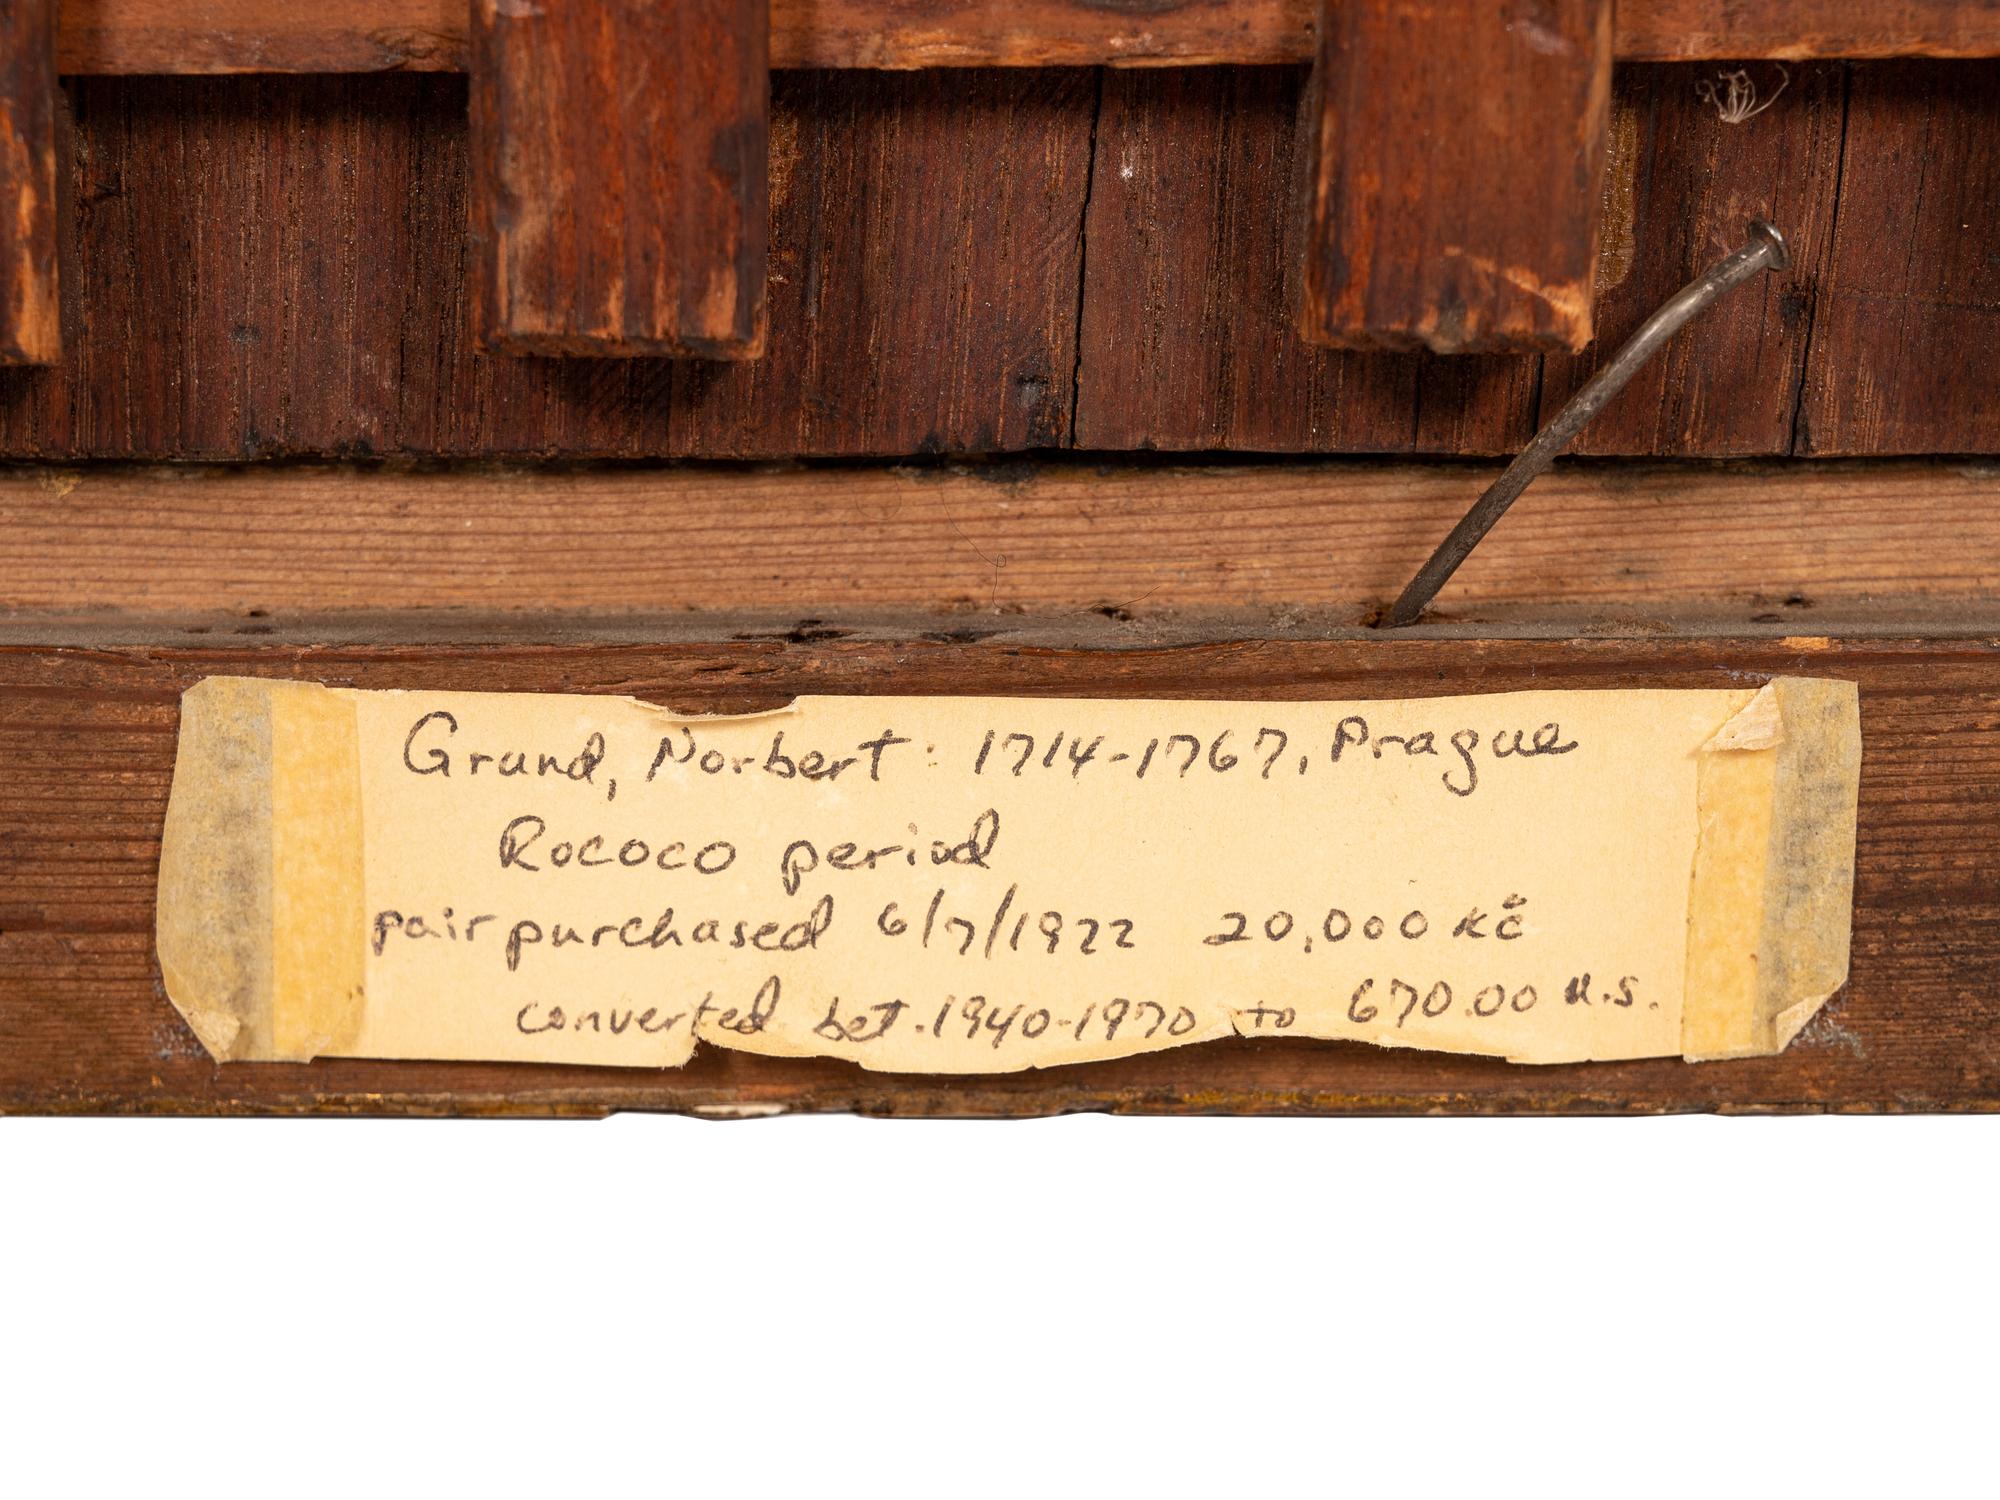 Grund, Norbert: 1714-1767, Prague
Rococo period
pair purchased 6/7/1922 20,000 Kč
converted bet. 1940-1970 to 670.00 U.S.